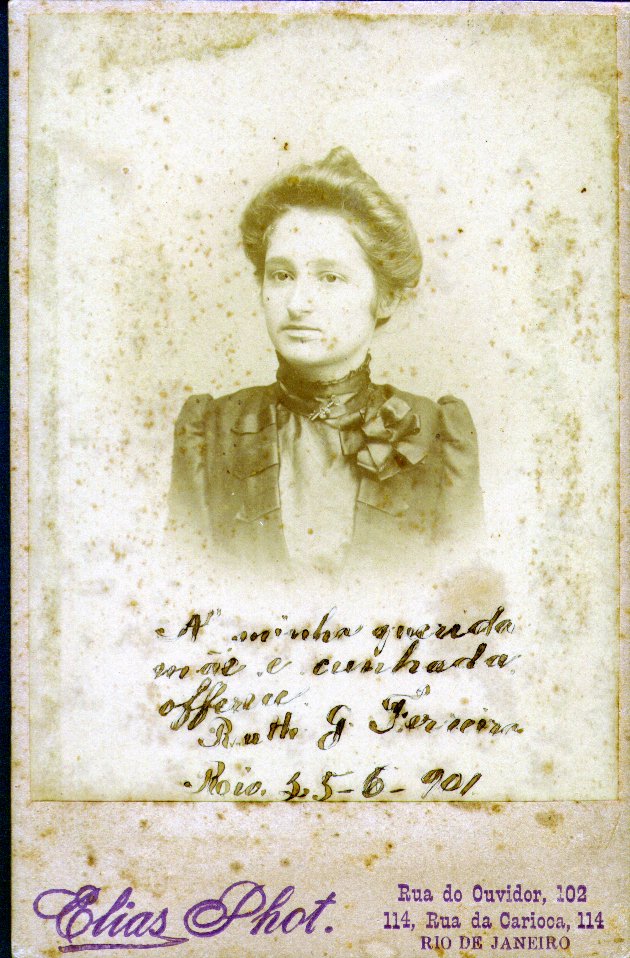 A' minha querida
mãe e cunhada
offerece
Ruth G. Ferreira
Rio. 25-6-901
Elias Phot.
Rua do Ouvidor, 102
114, Rua da Carioca, 114
RIO DE JANEIRO